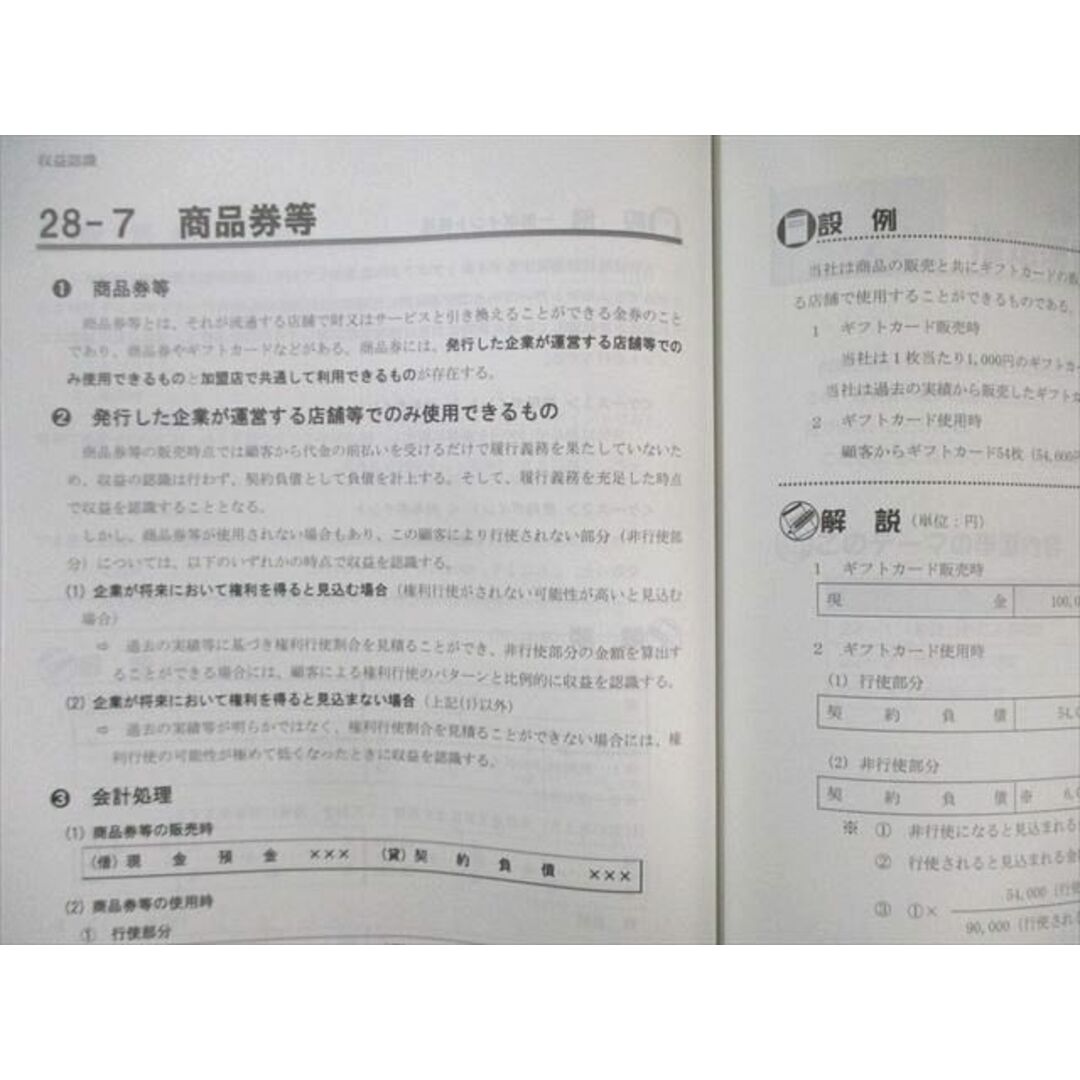 収益認識
28-7 商品券等
❶ 商品券等
商品券等とは、それが流通する店舗で財又はサービスと引き換えることができる金券のこと
であり、商品券やギフトカードなどがある。商品券には、発行した企業が運営する店舗等での
み使用できるものと加盟店で共通して利用できるものが存在する。
❷ 発行した企業が運営する店舗等でのみ使用できるもの
商品券等の販売時点では顧客から代金の前払いを受けるだけで履行義務を果たしていないた
め、収益の認識は行わず、契約負債として負債を計上する。そして、履行義務を充足した時点
で収益を認識することとなる。
しかし、商品券等が使用されない場合もあり、この顧客により行使されない部分（非行使部
分）については、以下のいずれかの時点で収益を認識する。
(1) 企業が将来において権利を得ると見込む場合（権利行使がされない可能性が高いと見込む
場合）
⇨ 過去の実績等に基づき権利行使割合を見積ることができ、非行使部分の金額を算出す
ることができる場合には、顧客による権利行使のパターンと比例的に収益を認識する。
(2) 企業が将来において権利を得ると見込まない場合（上記(1)以外）
⇨ 過去の実績等が明らかではなく、権利行使割合を見積ることができない場合には、権
利行使の可能性が極めて低くなったときに収益を認識する。
❸ 会計処理
(1) 商品券等の販売時
（借）現 金 預 金 ××× （貸）契 約 負 債 ×××
(2) 商品券等の使用時
① 行使部分
設 例
当社は商品の販売と共にギフトカードの販
る店舗で使用することができるものである。
1 ギフトカード販売時
当社は1枚当たり1,000円のギフトカー
当社は過去の実績から販売したギフトな
2 ギフトカード使用時
顧客からギフトカード54枚（54,000円
解 説（単位：円）
1 ギフトカード販売時
現 金 100,0
2 ギフトカード使用時
(1) 行使部分
契 約 負 債 54,0
(2) 非行使部分
契 約 負 債 ※ 6,0
※ ① 非行使になると見込まれる
② 行使されると見込まれる金
54,000（行使
③ ①×
90,000（行使され